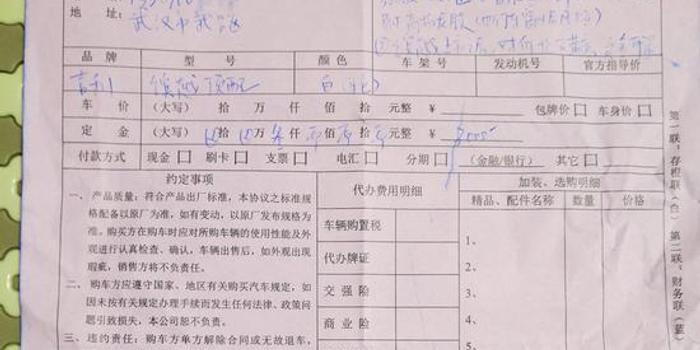 地 址： 武汉市武昌区
品 牌 型 号 颜 色 车 架 号 发动机号 官方指导价
吉利 缤越顶配 白
车 价 （大写） 拾 万 仟 佰 拾 元整 ￥ 包牌价 □ 车身价 □
定 金 （大写） 拾 万 仟 佰 拾 元整 ￥
付款方式 现金 □ 刷卡 □ 支票 □ 电汇 □ 分期 □ （金融/银行） 其它 □
约定事项
一、产品质量：符合产品出厂标准，本协议之标准规
格配备以原厂为准，如有变动，以原厂发布规格为
准。购买方在购车时应对所购车辆的使用性能及外
观进行认真检查、确认，车辆出售后，如外观出现
瑕疵，销售方将不负责任。
二、购车方应遵守国家、地区有关购买汽车规定，如
因未按有关规定办理手续而发生任何法律、政策问
题引致损失，本公司恕不负责。
三、违约责任：购车方单方解除合同或无故退车，
代办费用明细
车辆购置税
代办牌证
交 强 险
商 业 险
加装、选购明细
精品、配件名称 数量 价格
1、
2、
3、
4、
5、
第一联：存根联（白） 第二联：财务联（蓝）